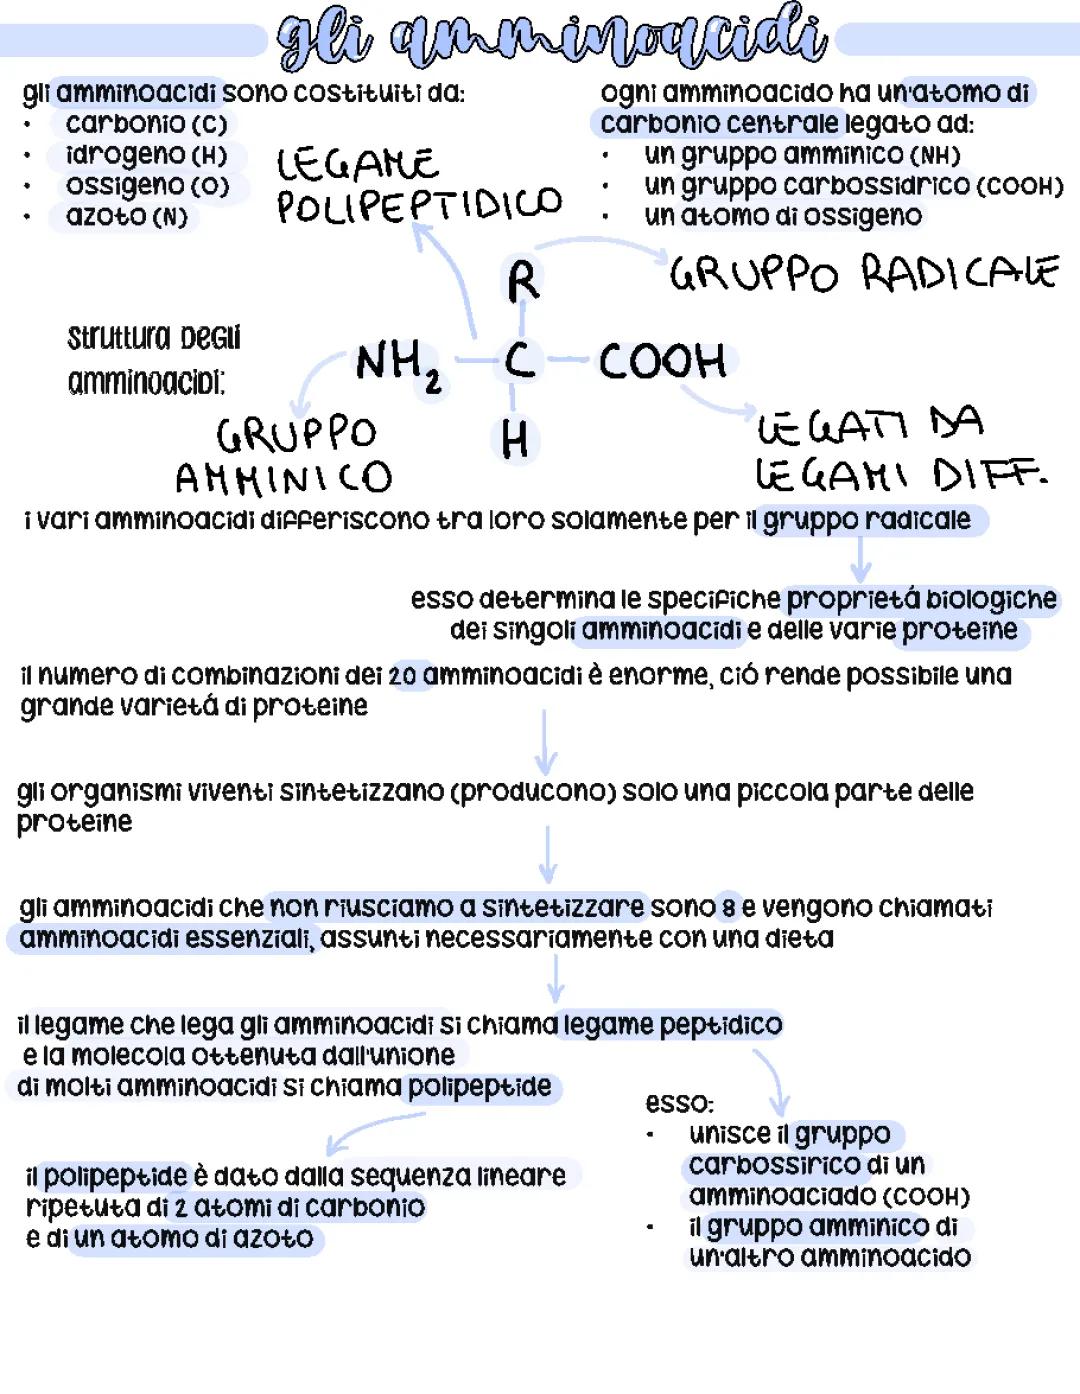 gli amminoacidi
gli amminoacidi sono costituiti da:
• carbonio (C)
• idrogeno (H)
• ossigeno (O)
• azoto (N)
ogni amminoacido ha un'atomo di
carbonio centrale legato ad:
• un gruppo amminico (NH)
• un gruppo carbossidrico (COOH)
• un atomo di ossigeno
LEGAME
POLIPEPTIDICO
R
GRUPPO RADICALE
struttura degli
amminoacidi:
NH₂ — C — COOH
H
GRUPPO
AMMINICO
LEGATI DA
LEGAMI DIFF.
i vari amminoacidi differiscono tra loro solamente per il gruppo radicale
esso determina le specifiche proprietá biologiche
dei singoli amminoacidi e delle varie proteine
il numero di combinazioni dei 20 amminoacidi è enorme, ció rende possibile una
grande varietá di proteine
gli organismi viventi sintetizzano (producono) solo una piccola parte delle
proteine
gli amminoacidi che non riusciamo a sintetizzare sono 8 e vengono chiamati
amminoacidi essenziali, assunti necessariamente con una dieta
il legame che lega gli amminoacidi si chiama legame peptidico
e la molecola ottenuta dall'unione
di molti amminoacidi si chiama polipeptide
il polipeptide è dato dalla sequenza lineare
ripetuta di 2 atomi di carbonio
e di un atomo di azoto
esso:
• unisce il gruppo
carbossirico di un
amminoaciado (COOH)
• il gruppo amminico di
un'altro amminoacido